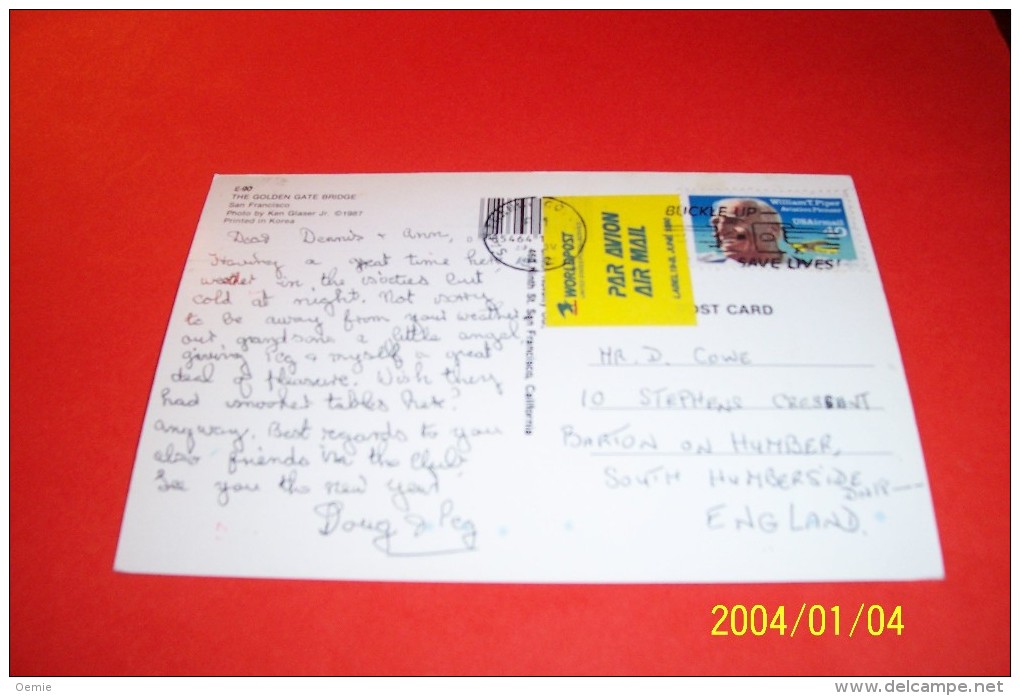 E-90
THE GOLDEN GATE BRIDGE
San Francisco
Photo by Ken Glaser Jr. ©1987
Printed in Korea
Dear Dennis & Ann,
Having a great time here
weather in the sixties but
cold at night. Not sorry
to be away from your weather
our grandsons a little angel,
giving Peg & myself a great
deal of pleasure. Wish they
had snooker tables here!
anyway. Best regards to you
also friends in the Club
See you the new year
Doug & Peg
468 Ninth St. San Francisco, California
WORLDPOST
PAR AVION
AIR MAIL
BUCKLE UP
SAVE LIVES!
William T. Piper
Aviation Pioneer
USAirmail
40
POST CARD
MR. D. COWE
10 STEPHENS CRESCENT
BARTON ON HUMBER,
SOUTH HUMBERSIDE
DN18
ENGLAND.
2004/01/04
Oemie
delcampe.net